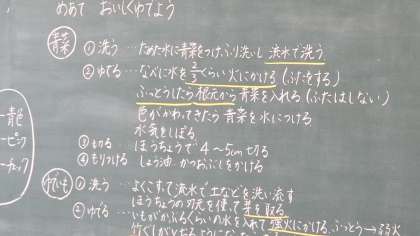 めあて おいしくゆでよう
青菜 ① 洗う …ためた水に青菜をつけ、ふり洗いし 流水で洗う
② ゆでる…なべに水を2/3くらい火にかける(ふたをする)
ふっとうしたら根元から青菜を入れる(ふたはしない)
色がかわってきたら 青菜を水につける
水気をしぼる
③ 切る … ほうちょうで 4〜5cm切る
④ もりつける しょう油、かつおぶしをかける
ゆでいも ① 洗う …よくこすって流水で土などを洗い流す
ほうちょうの刃元を使って芽を取る
② ゆでる …いもがかぶるくらいの水を入れて強火にかける、ふっとう→弱火
青色
ピンク